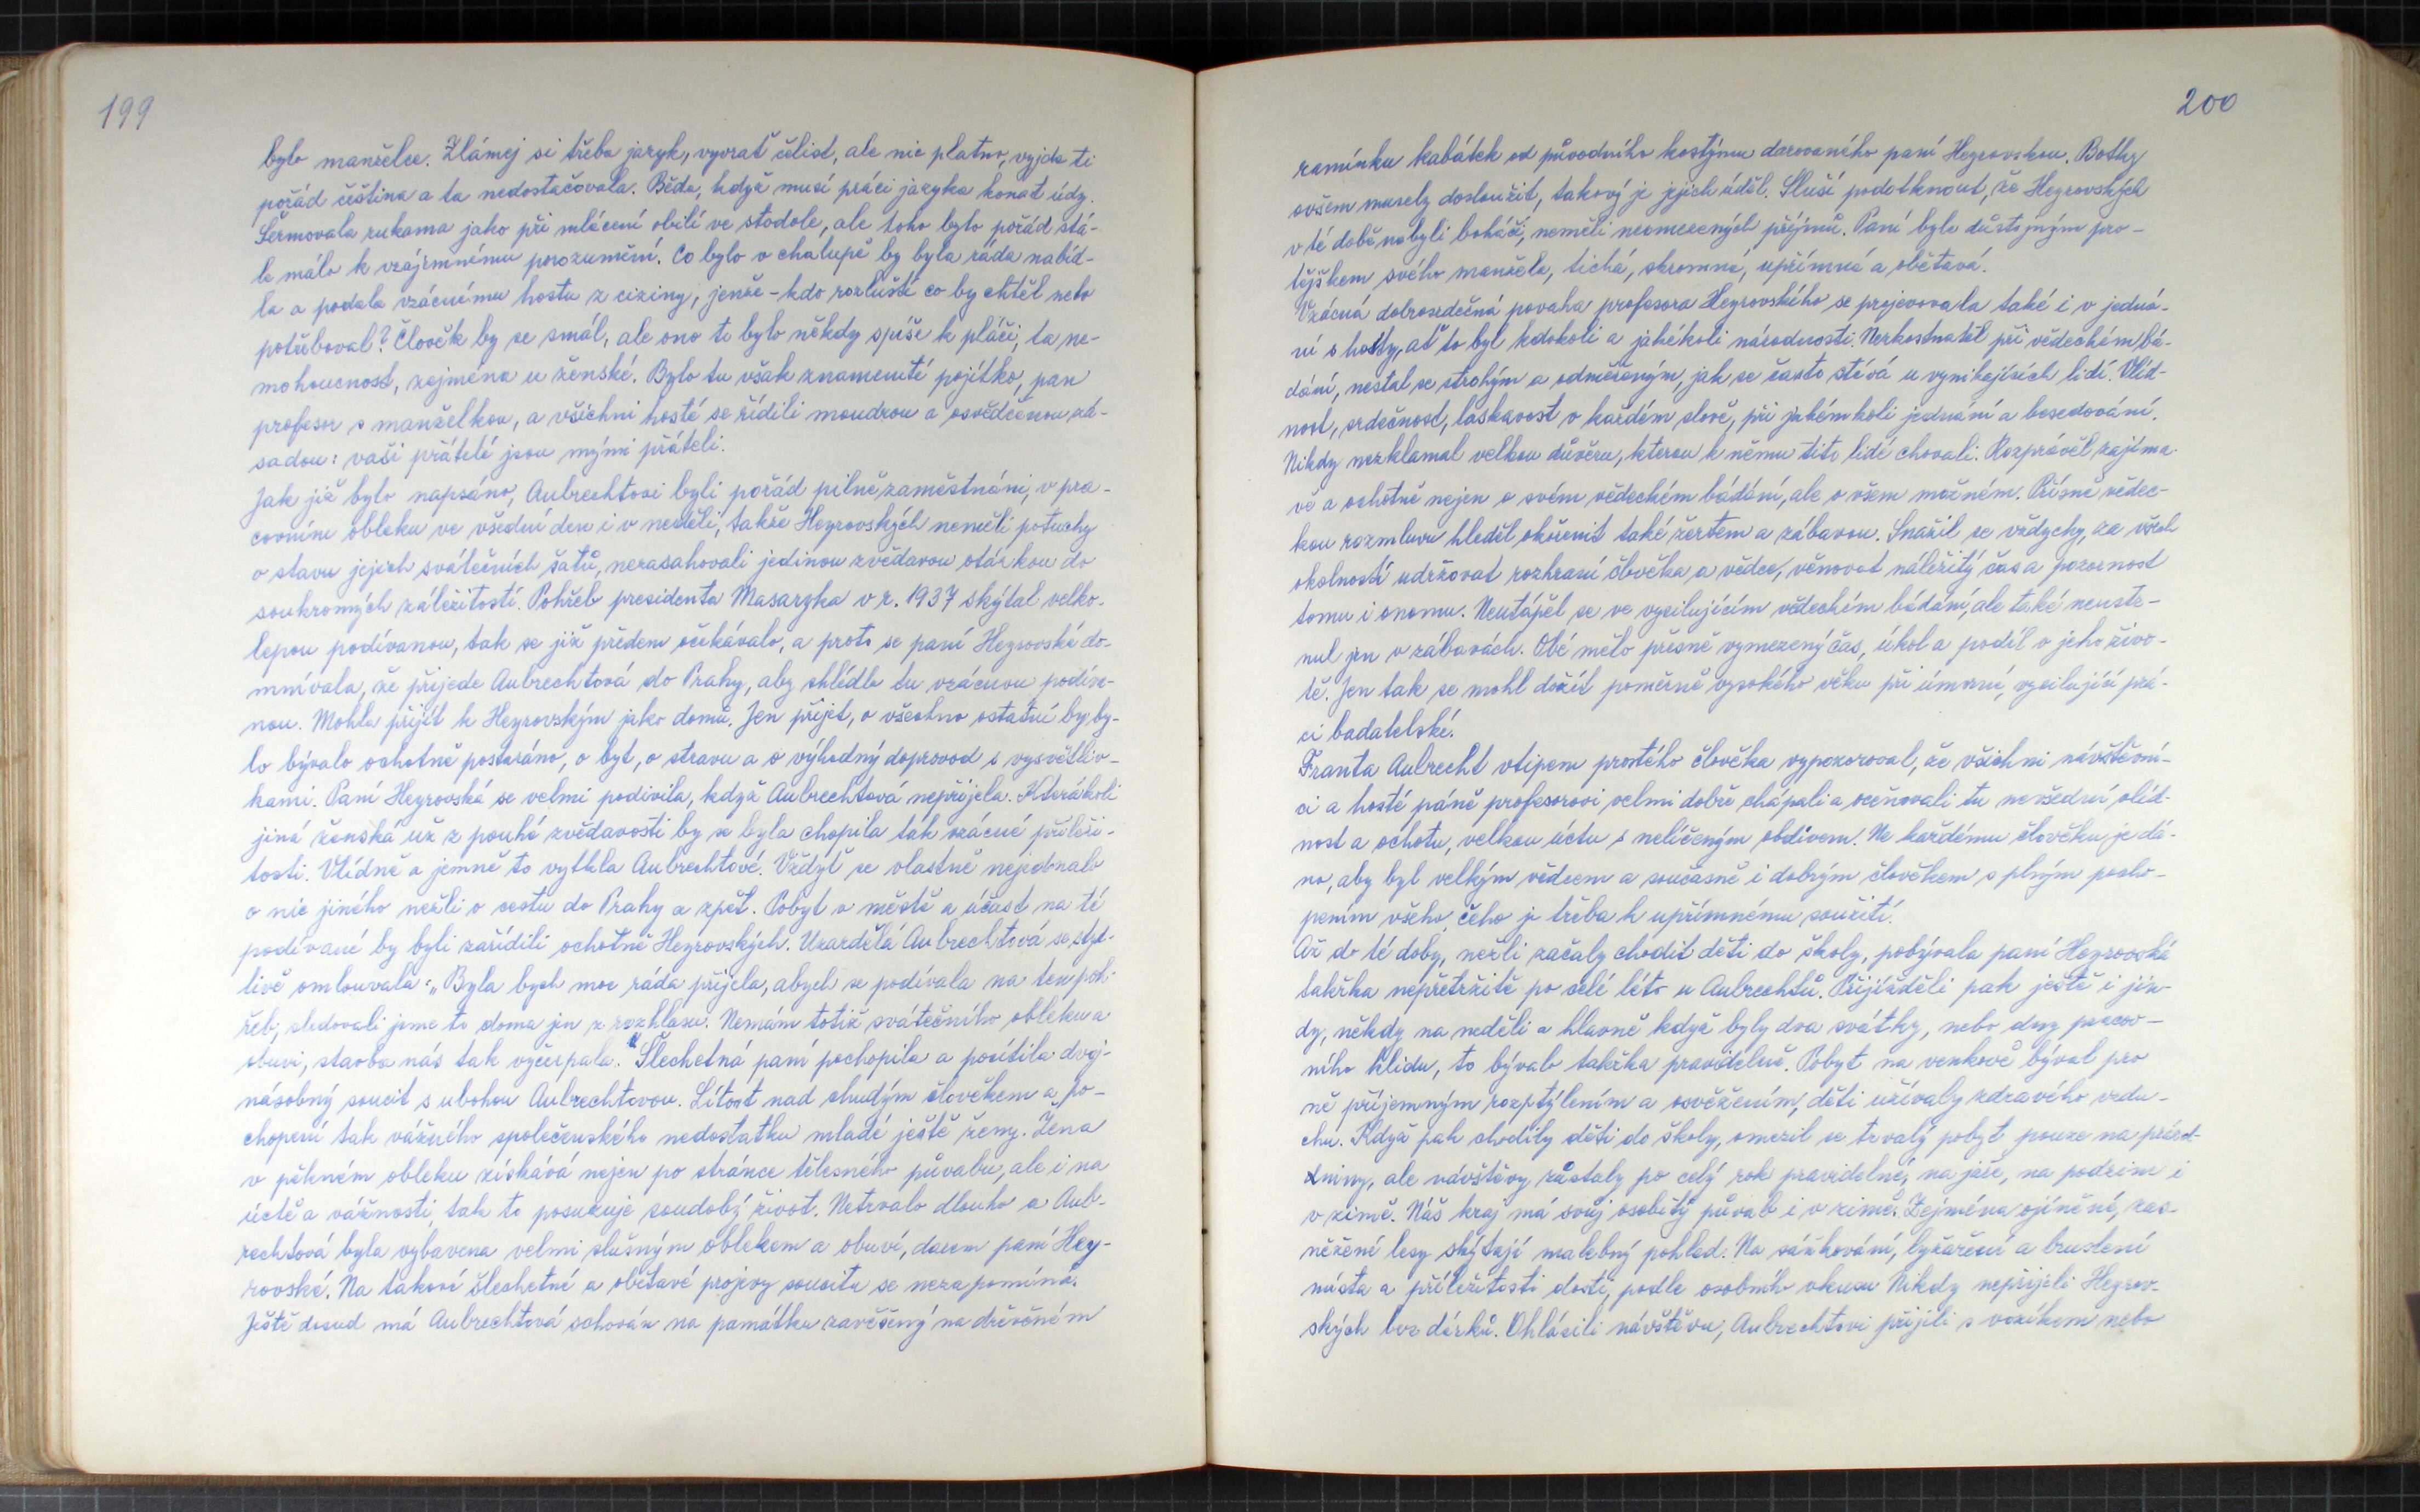 199
bylo manželce. Zlámej si třeba jazyk, vyvrať čelist, ale nic platno, vyjde ti
pořád čeština a ta nedostačovala. Běda, když musí práci jazyka konat údy.
Šermovala rukama jako při mlácení obilí ve stodole, ale toho bylo pořád stá-
le málo k vzájemnému porozumění. Co bylo v chalupě by byla ráda nabíd-
la a podala vzácnému hostu z ciziny, jenže - kdo rozluští co by chtěl nebo
potřeboval? Člověk by se smál, ale ono to bylo někdy spíše k pláči, ta ne-
mohoucnost, zejména u ženské. Bylo tu však znamenité pojítko, pan
profesor s manželkou, a všichni hosté se řídili moudrou a osvědčenou zá-
sadou: vaši přátelé jsou mými přáteli.
Jak již bylo napsáno, Aubrechtovi byli pořád pilně zaměstnáni, v pra-
covním obleku ve všední den i v neděli, takže Heyrovských neměli potuchy
o stavu jejich svátečních šatů, nezasahovali jedinou zvědavou otázkou do
soukromých záležitostí. Pohřeb presidenta Masaryka v r. 1937 skýtal velko-
lepou podívanou, tak se již předem očekávalo, a proto se paní Heyrovská do-
mnívala, že přijede Aubrechtová do Prahy, aby shlédla tu vzácnou podíva-
nou. Mohla přijít k Heyrovským jako domů. Jen přijet, o všechno ostatní by by-
lo bývalo ochotně postaráno, o byt, o stravu a o výhodný doprovod s vysvětliv-
kami. Paní Heyrovská se velmi podivila, když Aubrechtová nepřijela. Kterákoli
jiná ženská už z pouhé zvědavosti by se byla chopila tak vzácné příleži-
tosti. Vlídně a jemně to vytkla Aubrechtové. Vždyť se vlastně nejednalo
o nic jiného nežli o cestu do Prahy a zpět. Pobyt v městě a účast na té
podívané by byli zařídili ochotně Heyrovských. Uzardělá Aubrechtová se styd-
livě omlouvala: „Byla bych moc ráda přijela, abych se podívala na ten poh-
řeb, sledovali jsme to doma jen z rozhlasu. Nemám totiž svátečního obleku a
obuvi, stavba nás tak vyčerpala." Šlechetná paní pochopila a pocítila dvoj-
násobný soucit s ubohou Aubrechtovou. Lítost nad chudým člověkem a po-
chopení tak vážného společenského nedostatku mladé ještě ženy. Žena
v pěkném obleku získává nejen po stránce tělesného půvabu, ale i na
úctě a vážnosti, tak to posuzuje soudobý život. Netrvalo dlouho a Aub-
rechtová byla vybavena velmi slušným oblekem a obuví, darem paní Hey-
rovské. Na takové šlechetné a obětavé projevy soucitu se nezapomíná.
Ještě dosud má Aubrechtová schován na památku zavěšený na dřevěném
200
ramínku kabátek od původního kostýmu darovaného paní Heyrovskou. Botky
ovšem musely dosloužit, takový je jejich úděl. Sluší podotknout, že Heyrovských
v té době nebyli boháči, neměli neomezených příjmů. Paní byla důstojným pro-
tějškem svého manžela, tichá, skromná, upřímná a obětavá.
Vzácná dobrosrdečná povaha profesora Heyrovského se projevovala také i v jedná-
ní s hosty, ať to byl kdokoli a jakékoli národnosti. Nezkostnatěl při vědeckém bá-
dání, nestal se strohým a odměřeným, jak se často stává u vynikajících lidí. Vlíd-
nost, srdečnost, laskavost v každém slově, při jakémkoli jednání a besedování.
Nikdy nezklamal velkou důvěru, kterou k němu tito lidé chovali. Rozprávěl zajíma-
vě a ochotně nejen o svém vědeckém bádání, ale o všem možném. Přísně vědec-
kou rozmluvu hleděl okořenit také žertem a zábavou. Snažil se vždycky, za všech
okolností udržovat rozhraní člověka a vědce, věnovat náležitý čas a pozornost
tomu i onomu. Neutápěl se ve vysilujícím vědeckém bádání, ale také neuste-
nul jen v zábavách. Obé mělo přesně vymezený čas, úkol a podíl v jeho živo-
tě. Jen tak se mohl dožít poměrně vysokého věku při úmorné, vysilující prá-
ci badatelské.
Franta Aubrecht vtipem prostého člověka vypozoroval, že všichni návštěvní-
ci a hosté páně profesorovi velmi dobře chápali a oceňovali tu nevšední vlíd-
nost a ochotu, velkou úctu s nelíčeným obdivem. Ne každému člověku je dá-
no, aby byl velkým vědcem a současně i dobrým člověkem s plným pocho-
pením všeho, čeho je třeba k upřímnému soužití.
Až do té doby, nežli začaly chodit děti do školy, pobývala paní Heyrovská
takřka nepřetržitě po celé léto u Aubrechtů. Přijížděli pak ještě i jin-
dy, někdy na neděli a hlavně když byly dva svátky, nebo dny pracov-
ního klidu, to bývalo takřka pravidelně. Pobyt na venkově býval pro
ně příjemným rozptýlením a osvěžením, děti užívaly zdravého vzdu-
chu. Když pak chodily děti do školy, omezil se trvalý pobyt pouze na prázd-
niny, ale návštěvy zůstaly po celý rok pravidelné, na jaře, na podzim i
v zimě. Náš kraj má svůj osobitý půvab i v zimě. Zejména ojíněné, zas-
něžené lesy skýtají malebný pohled. Na sáňkování, lyžaření a bruslení
místa a příležitosti dosti, podle osobního vkusu. Nikdy nepřijeli Heyrov-
ských bez dárků. Ohlásili návštěvu, Aubrechtovi přijeli s vozíkem nebo